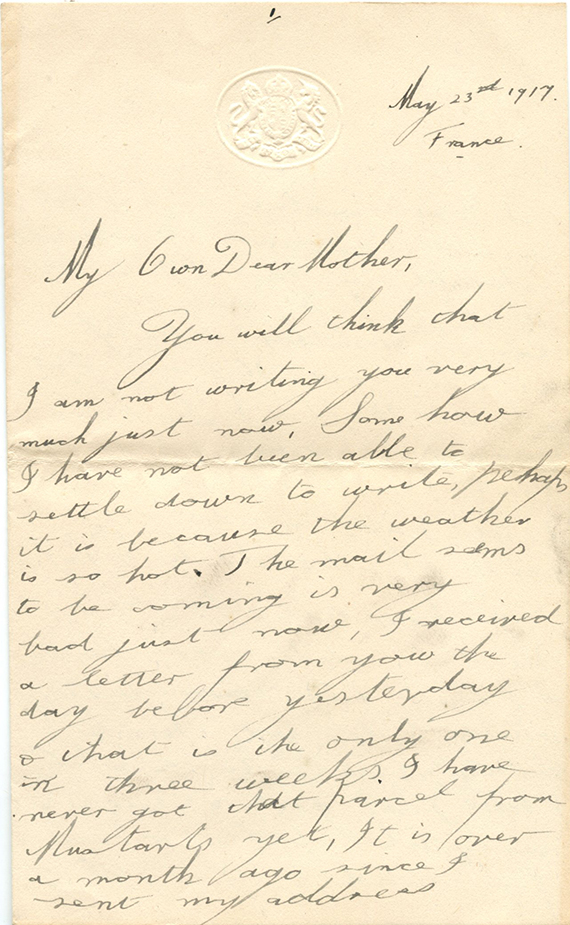 1
May 23rd 1917.
France.
My Own Dear Mother,
You will think that
I am not writing you very
much just now, Some how
I have not been able to
settle down to write, perhaps
it is because the weather
is so hot. The mail seems
to be coming is very
bad just now, I received
a letter from yow the
day before yesterday
& that is the only one
in three weeks. I have
never got that parcel from
yet, It is over
a month ago since I
sent my address